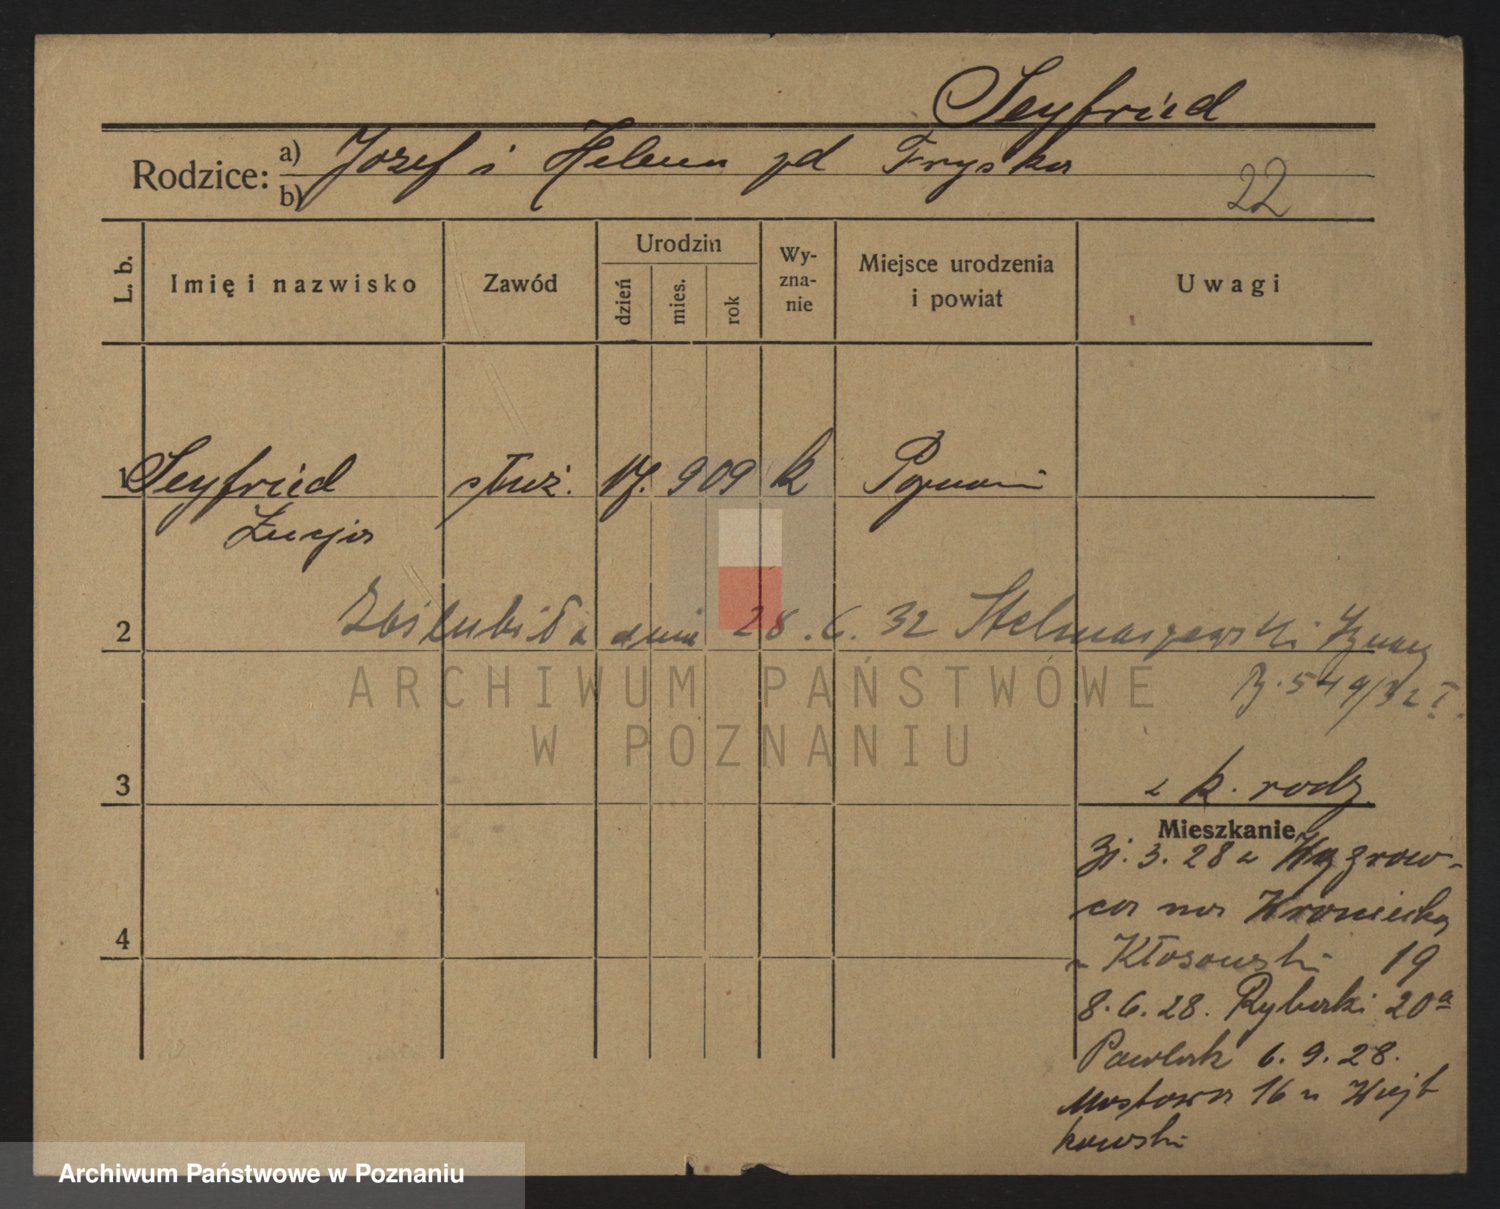 Seyfried
Rodzice: a) Józef i Helena zd Fryska
b)
22
L. b.
Imię i nazwisko
Zawód
Urodzin
dzień
mies.
rok
Wy-
zna-
nie
Miejsce urodzenia
i powiat
Uwagi
1 Seyfried służ. 909 k Poznań
Łucja
2
dnia 28.6.32 Stelmaszewski Ignacy
549/32 I.
3
k. rodz.
Mieszkanie
3.28 z Wągrow-
ca na Kronieckę
u Kłosowski 19
8.6.28. Rybaki 20a
Pawlak 6.9.28.
Mostowa 16 u Wojt
kowski
4
ARCHIWUM PAŃSTWOWE
W POZNANIU
Archiwum Państwowe w Poznaniu